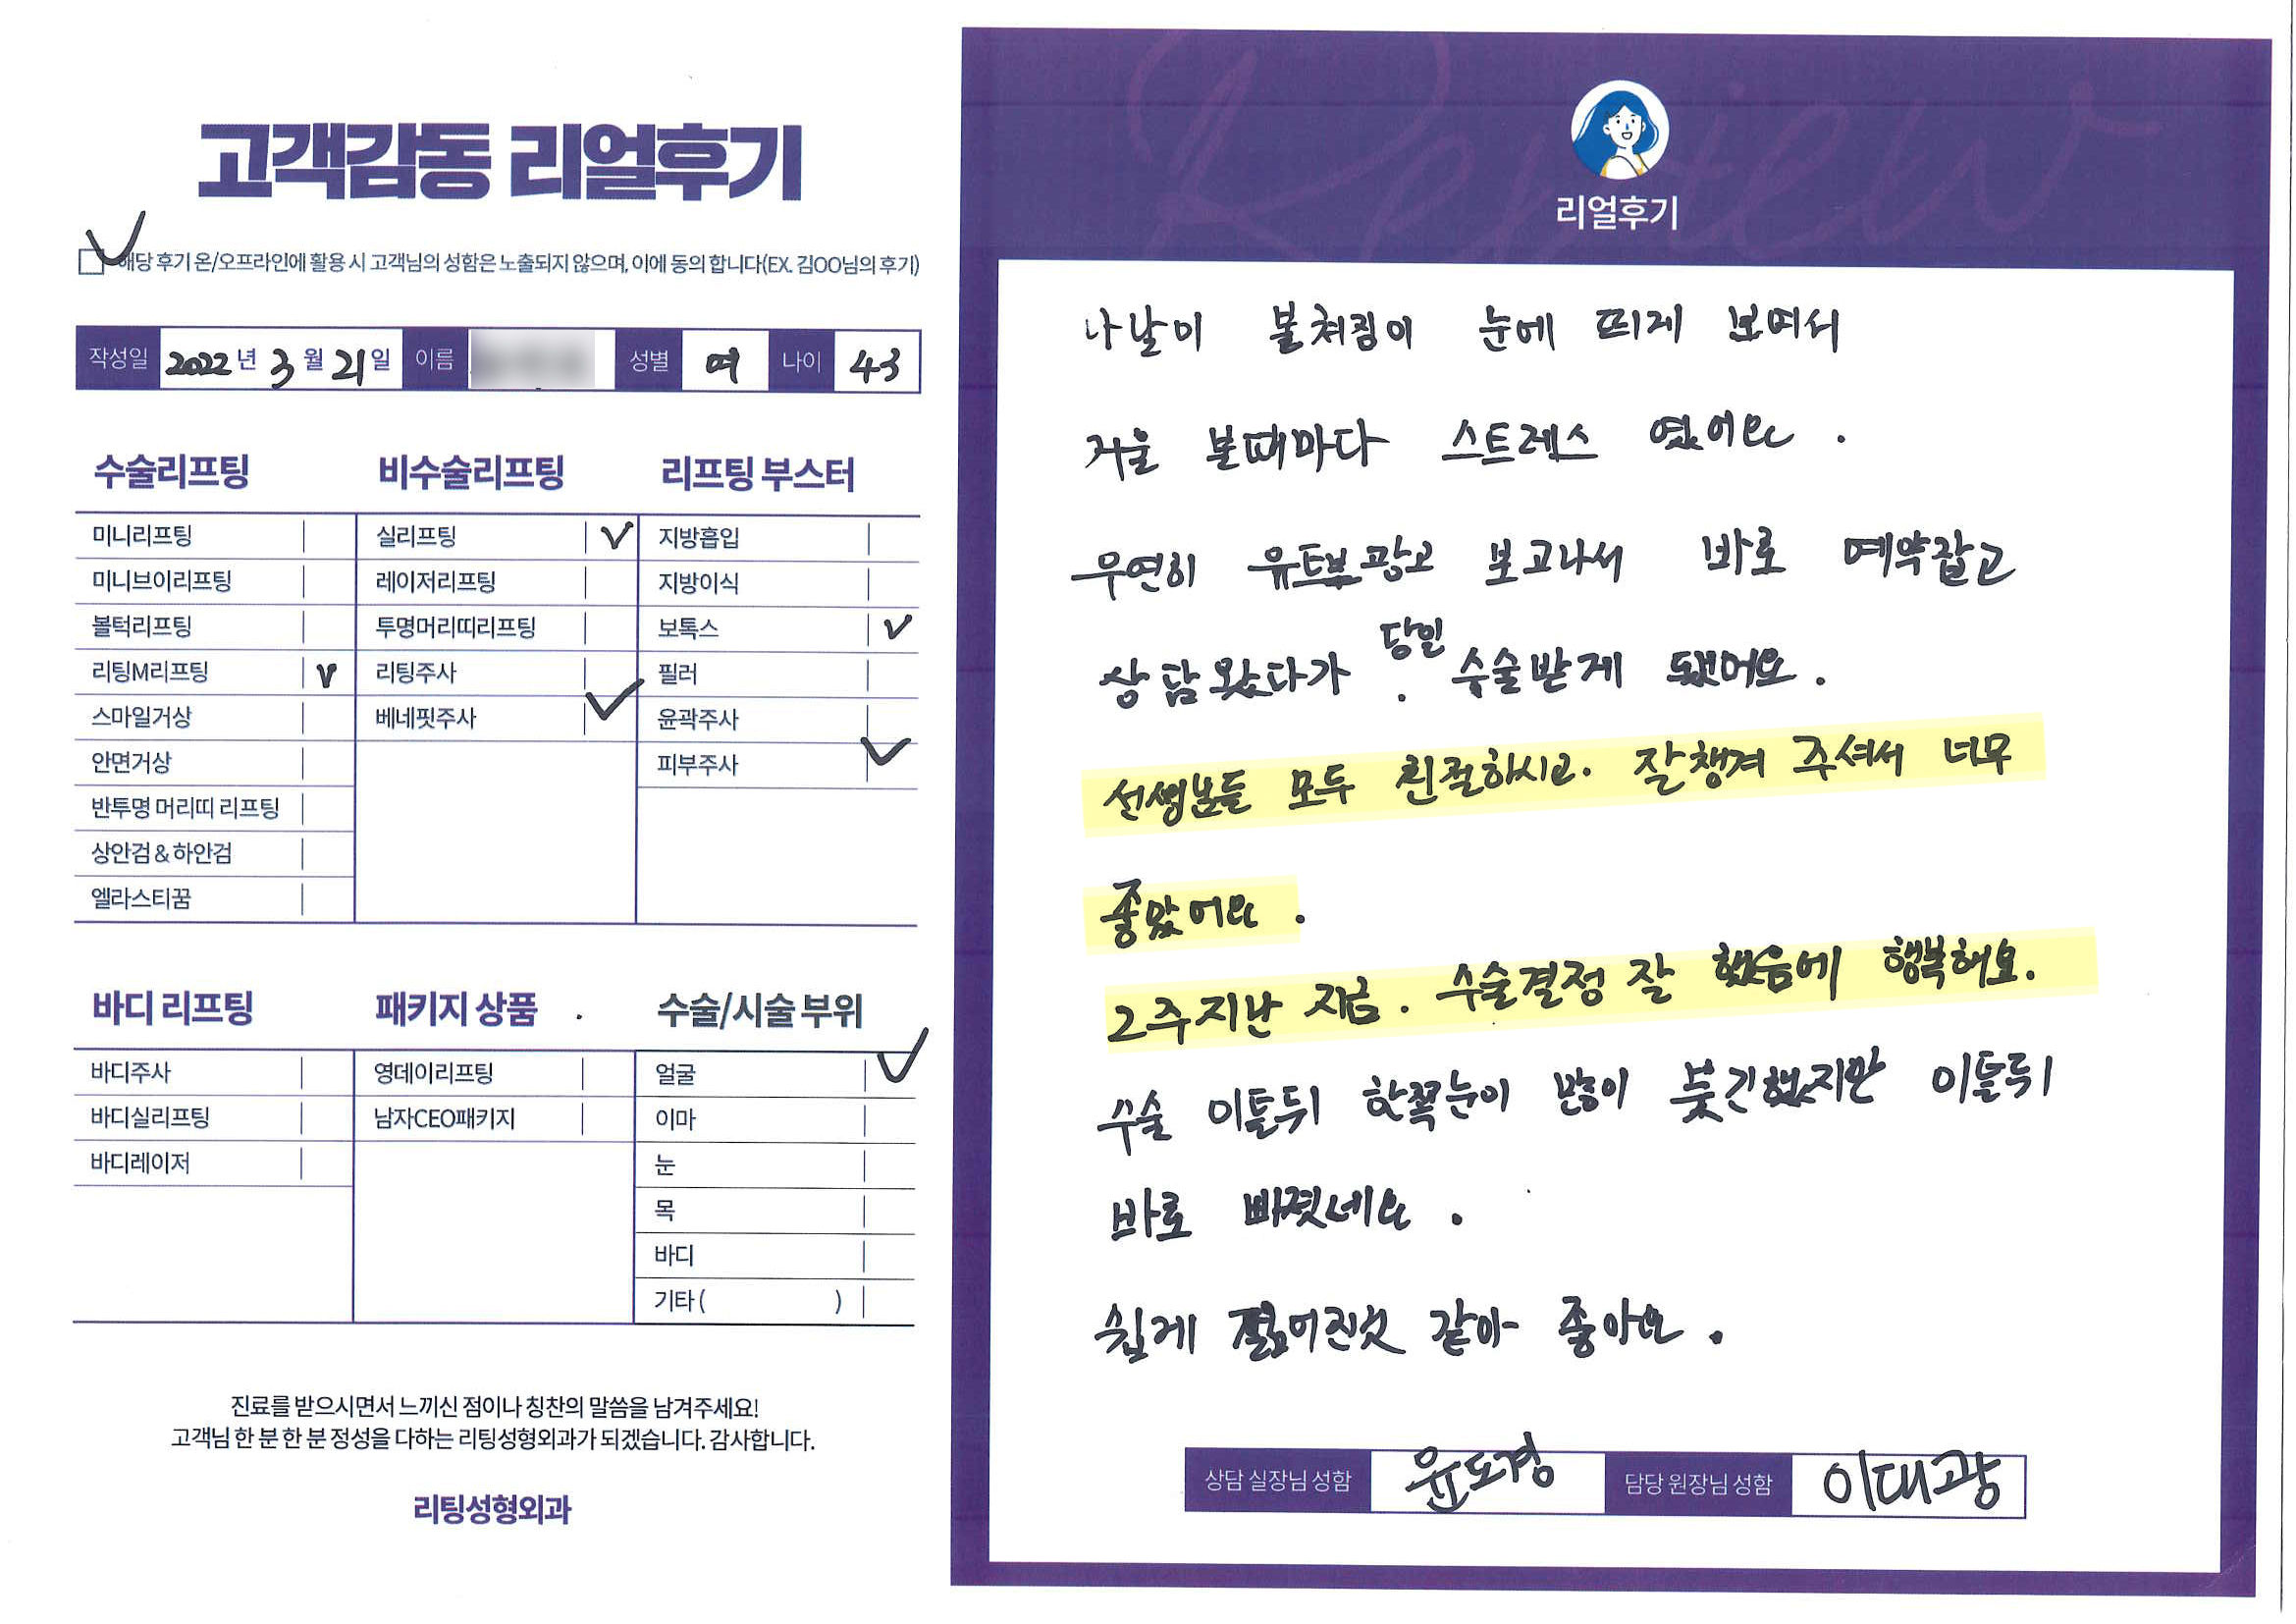 고객감동 리얼후기
해당 후기 온/오프라인에 활용 시 고객님의 성함은 노출되지 않으며, 이에 동의 합니다(EX. 김OO님의 후기)
작성일 2022년 3월 21일 이름 성별 여 나이 43
수술리프팅
미니리프팅
미니브이리프팅
볼턱리프팅
리팅M리프팅 V
스마일거상
안면거상
반투명 머리띠 리프팅
상안검 & 하안검
엘라스티꿈
비수술리프팅
실리프팅 V
레이저리프팅
투명머리띠리프팅
리팅주사
베네핏주사 V
리프팅 부스터
지방흡입
지방이식
보톡스 V
필러
윤곽주사
피부주사 V
바디 리프팅
바디주사
바디실리프팅
바디레이저
패키지 상품
영데이리프팅
남자CEO패키지
수술/시술 부위
얼굴 V
이마
눈
목
바디
기타 ( )
진료를 받으시면서 느끼신 점이나 칭찬의 말씀을 남겨주세요!
고객님 한 분 한 분 정성을 다하는 리팅성형외과가 되겠습니다. 감사합니다.
리팅성형외과
Review
리얼후기
나날이 볼쳐짐이 눈에 띄게 보여서
거울 볼때마다 스트레스 였어요.
우연히 유트브광고 보고나서 바로 예약잡고
상담 왔다가. 당일 수술받게 됐어요.
선생님분들 모두 친절하시고. 잘챙겨 주셔서 너무
좋았어요.
2주지난 지금. 수술결정 잘 했음에 행복해요.
수술 이틀뒤 한쪽눈이 많이 붓긴했지만 이틀뒤
바로 빠졌네요.
쉽게 젊어진것 같아 좋아요.
상담 실장님 성함 윤도경 담당 원장님 성함 이대광